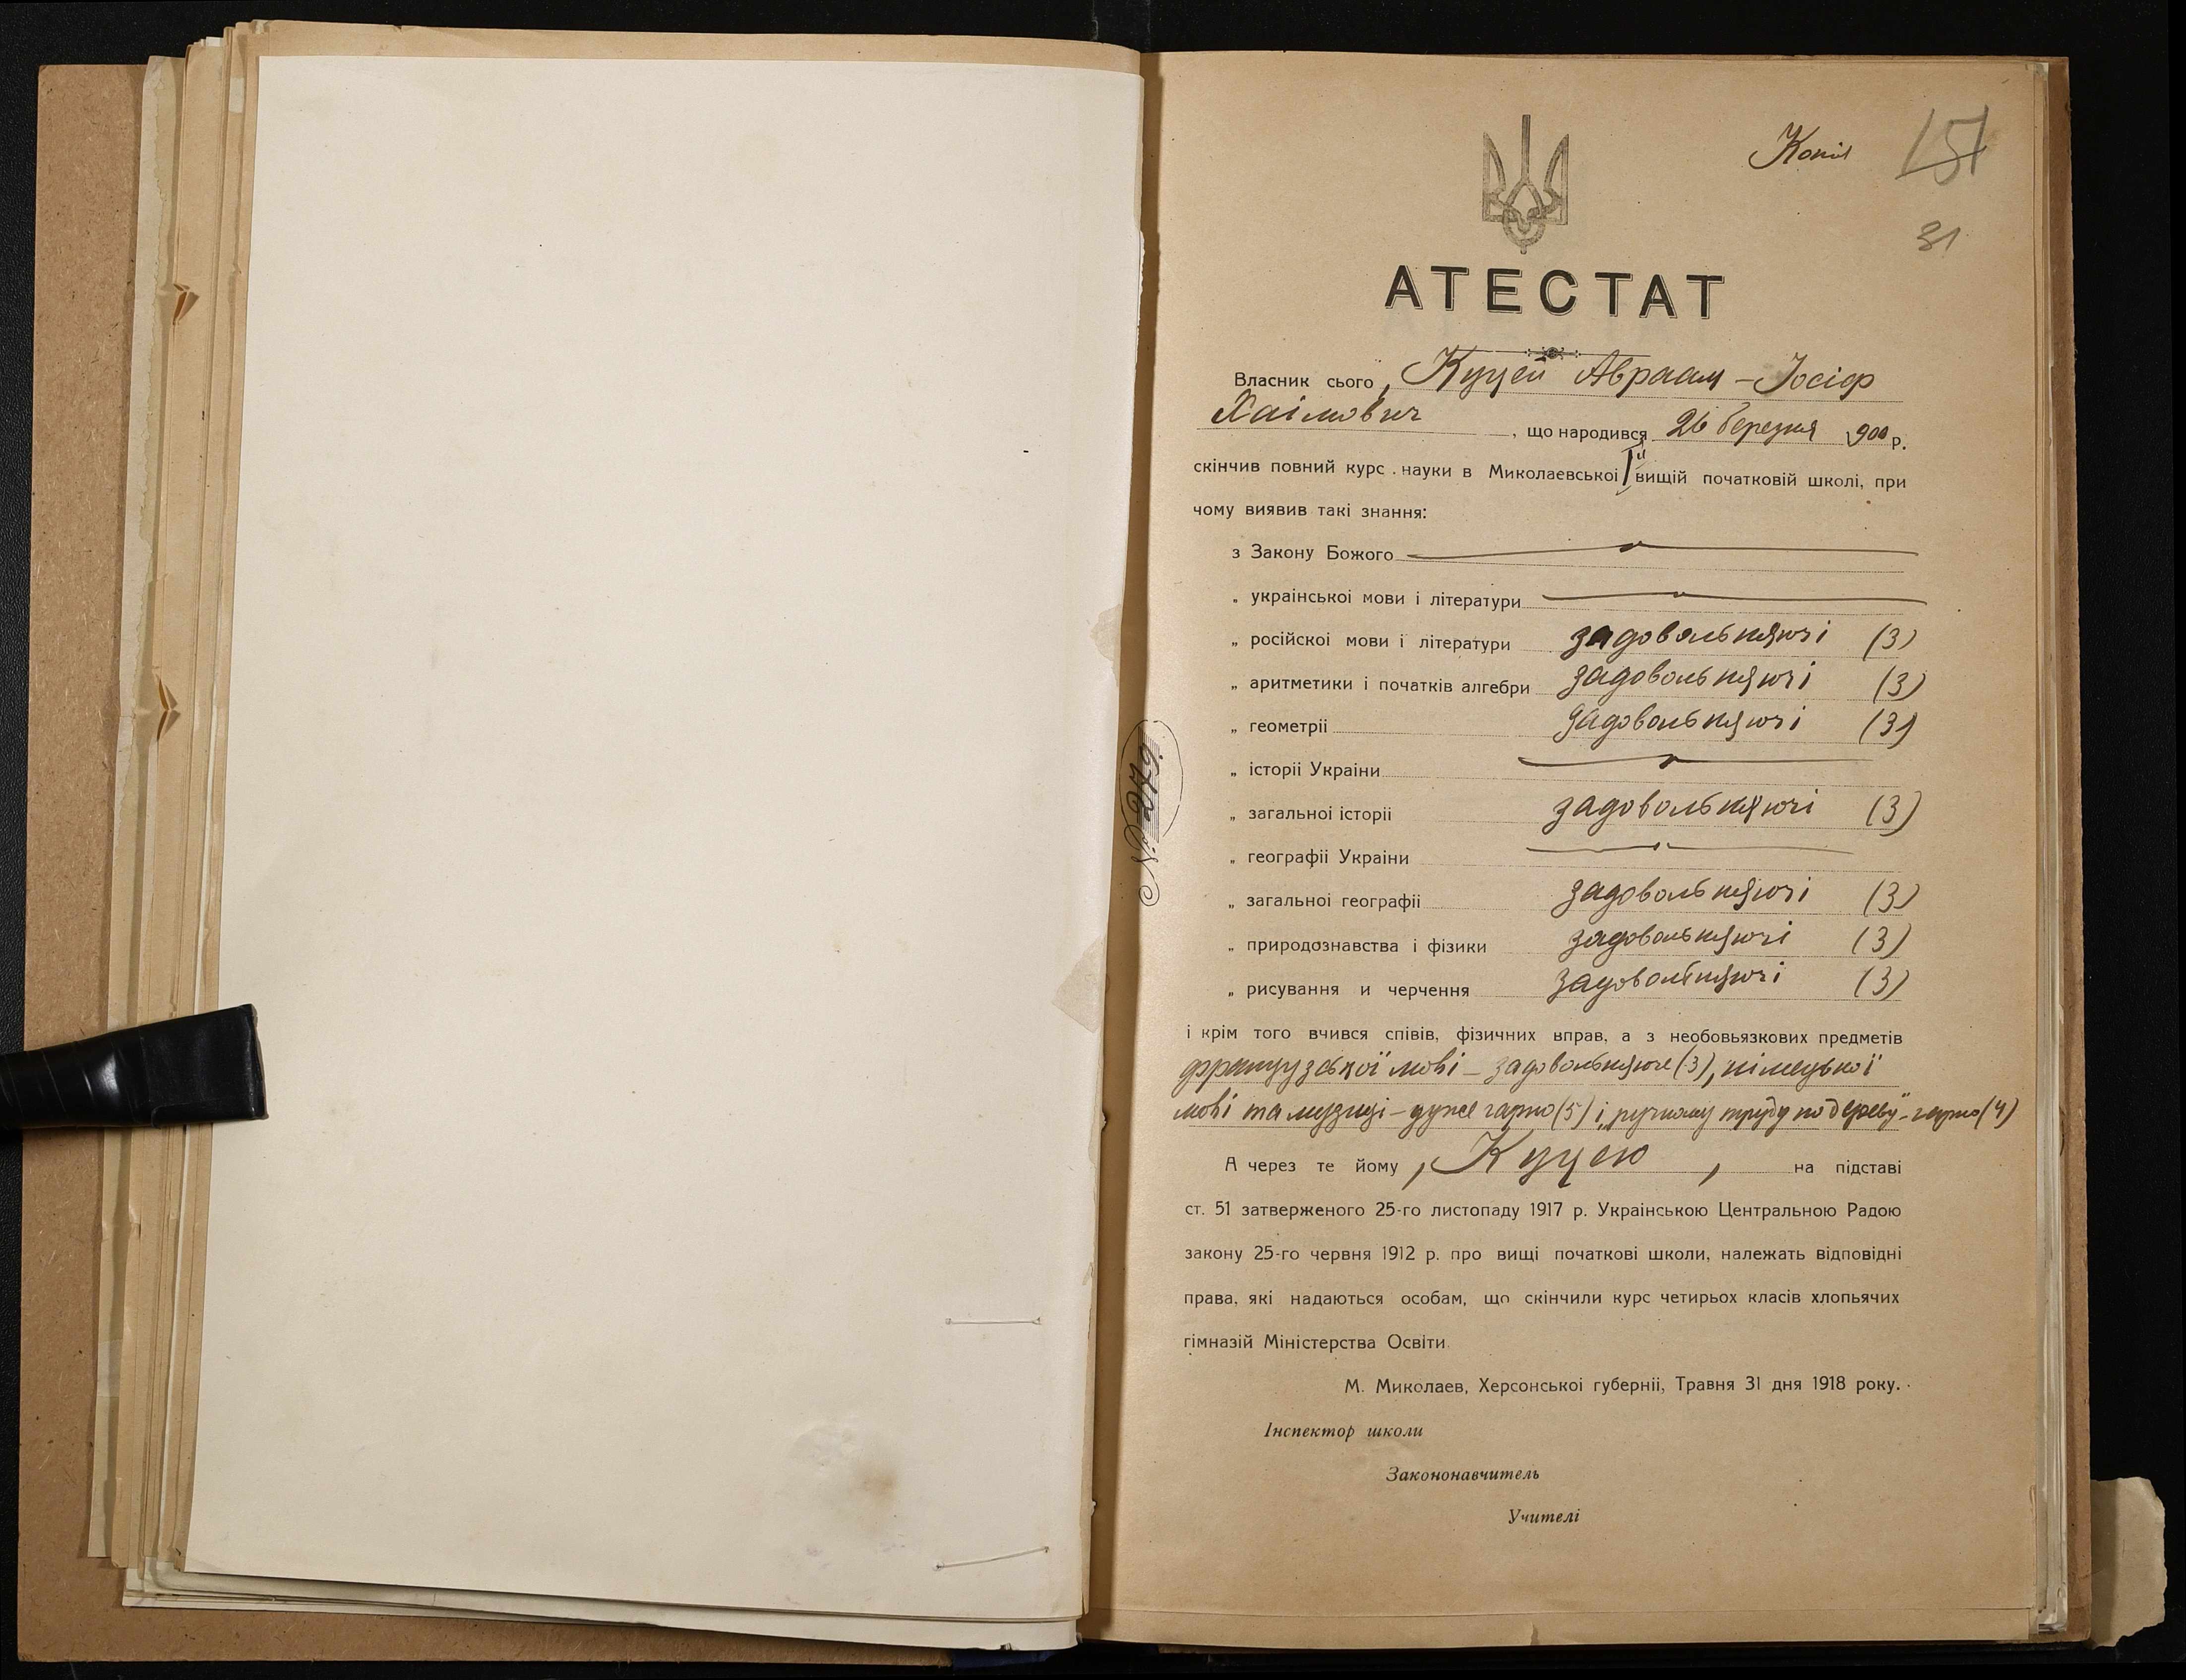 Копія
151
31
АТЕСТАТ
Власник сього, Куцей Авраам-Іосіф
Хаімович, що народився 26 березня 1900 р.
скінчив повний курс науки в Миколаевськоі Iй вищій початковій школі, при
чому виявив такі знання:
з Закону Божого
„ украінськоі мови і літератури
„ російскоі мови і літератури задовольняючі (3)
„ аритметики і початків алгебри задовольняючі (3)
„ геометріі задовольняючі (3)
„ історіі Украіни
„ загальноі історіі задовольняючі (3)
„ географіі Украіни
„ загальноі географіі задовольняючі (3)
„ природознавства і фізики задовольняючі (3)
„ рисування и черчення задовольняючі (3)
і крім того вчився співів, фізичних вправ, а з необовьязкових предметів
французської мові – задовольняюче (3), німецької
мові та музиці – дуже гарно (5) і „ручному труду по дереву" – гарно (4)
А через те йому, Куцею, на підставі
ст. 51 затверженого 25-го листопаду 1917 р. Украінською Центральною Радою
закону 25-го червня 1912 р. про вищі початкові школи, належать відповідні
права, які надаються особам, що скінчили курс четирьох класів хлопьячих
гімназій Міністерства Освіти.
М. Миколаев, Херсонськоі губерніі, Травня 31 дня 1918 року.
Інспектор школи
Закононавчитель
Учителі
№ 279.